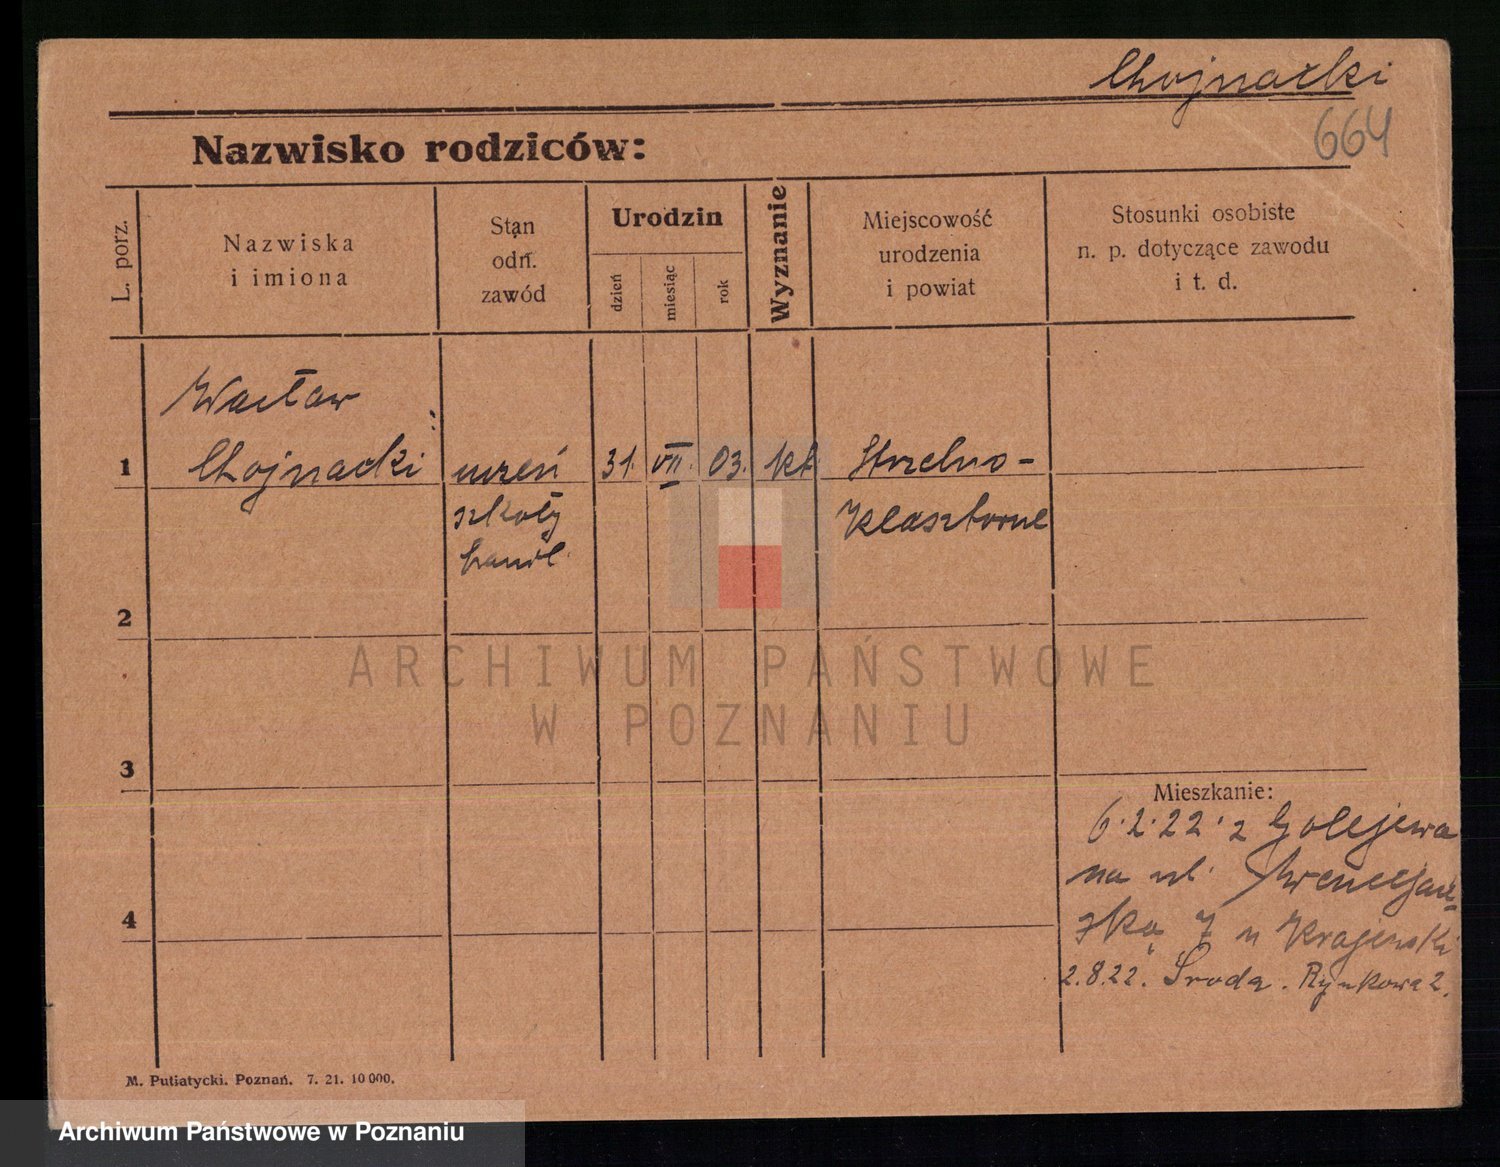 Chojnacki
664
Nazwisko rodziców:
L. porz.
Nazwiska
i imiona
Stan
odn.
zawód
Urodzin
dzień
miesiąc
rok
Wyznanie
Miejscowość
urodzenia
i powiat
Stosunki osobiste
n. p. dotyczące zawodu
i t. d.
Wacław
1 Chojnacki uczeń 31. VII. 03. kt. Strzelno-
szkoły Klasztorne
handl.
2
ARCHIWUM PAŃSTWOWE
W POZNANIU
3
Mieszkanie:
6.2.22. z Golejewa
na ul.
4
7 u Krajenski
2.8.22. Środa. Rynkowa 2.
M. Putiatycki. Poznań. 7. 21. 10 000.
Archiwum Państwowe w Poznaniu